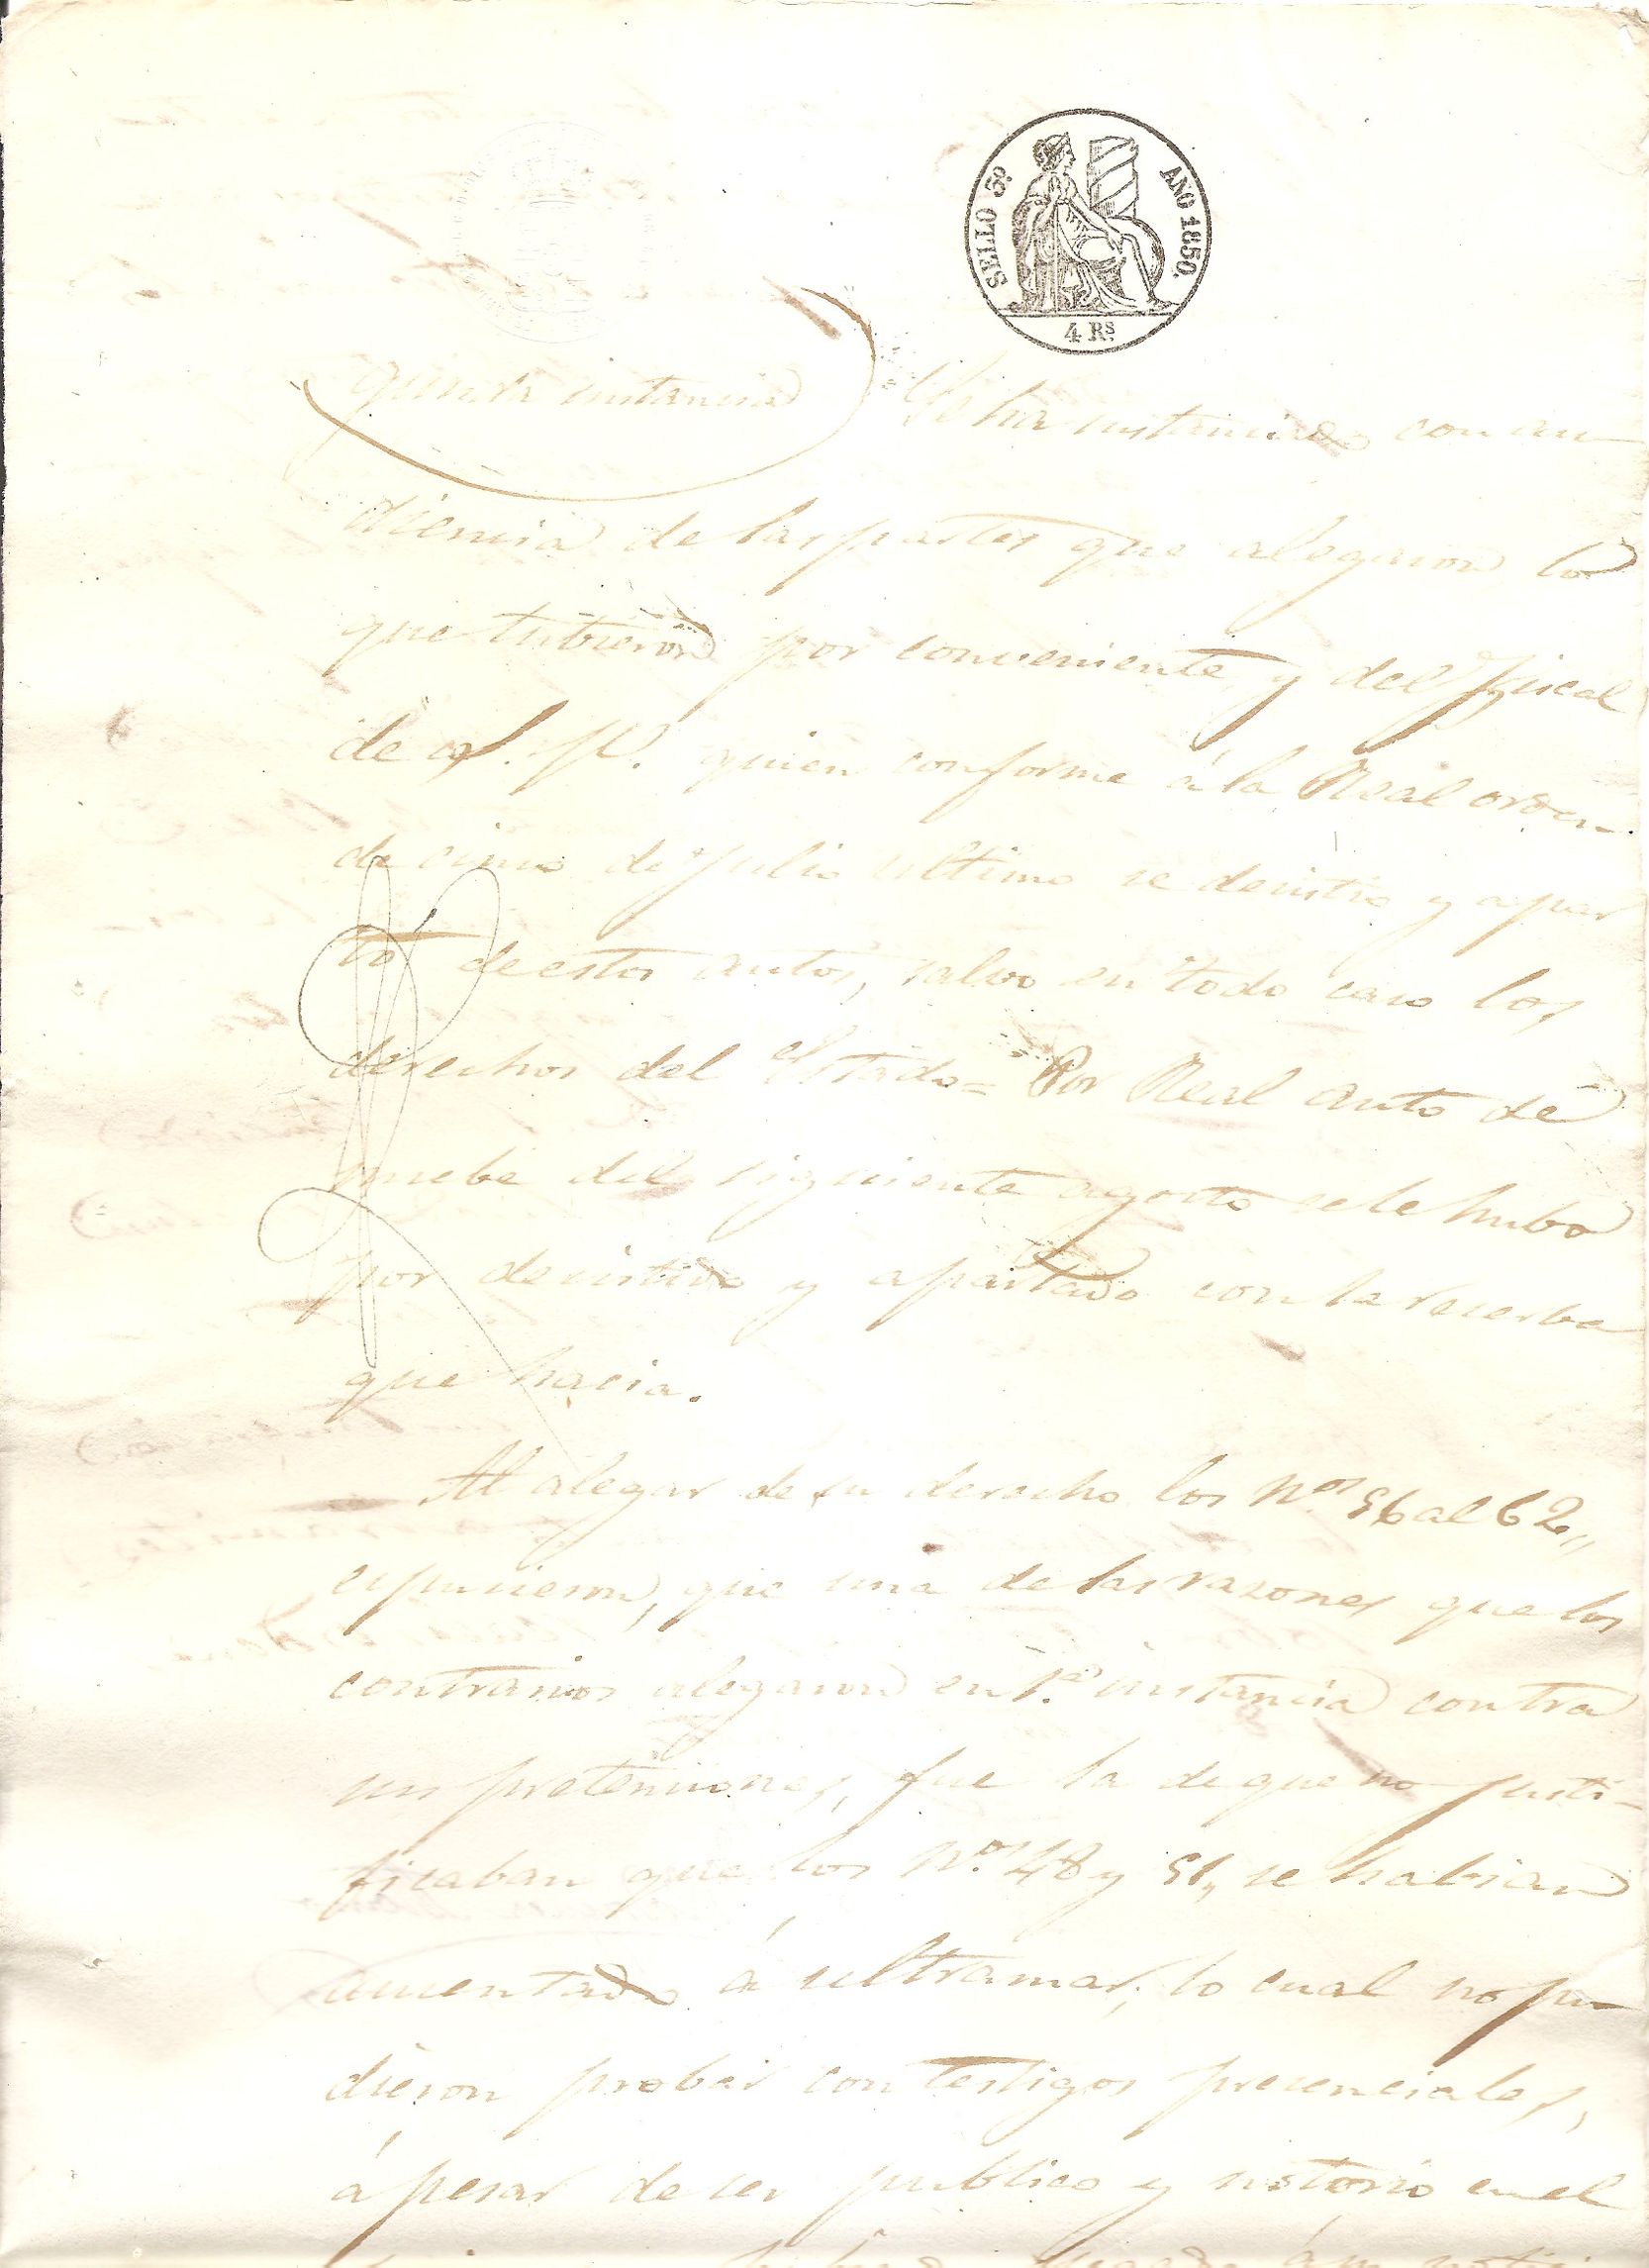 SELLO 3º AÑO 1850.
4 Rs.
gunda instancia Se ha instanciado con au-
diencia de las partes que alegaron lo
que tubieron por conveniente y del Fiscal
de S. M. quien conforme á la Real orden
de cinco de Julio ultimo se desistio y apar
tó de estos autos, salvo en todo caso los
derechos del Estado = Por Real auto de
nuebe del siguiente agosto se le hubo
por desistido y apartado con la reserba
que hacia.
Al alegar de su derecho los Nos 56 al 62,,
espusieron, que una de las razones que los
contrarios alegaron en 1.ª instancia contra
sus pretensiones, fue la de que no justi-
ficaban que los Nos 48 y 51,, se habian
ausentado á ultramar; lo cual no pu-
dieron probar con testigos presenciales,
á pesar de ser publico y notorio en el